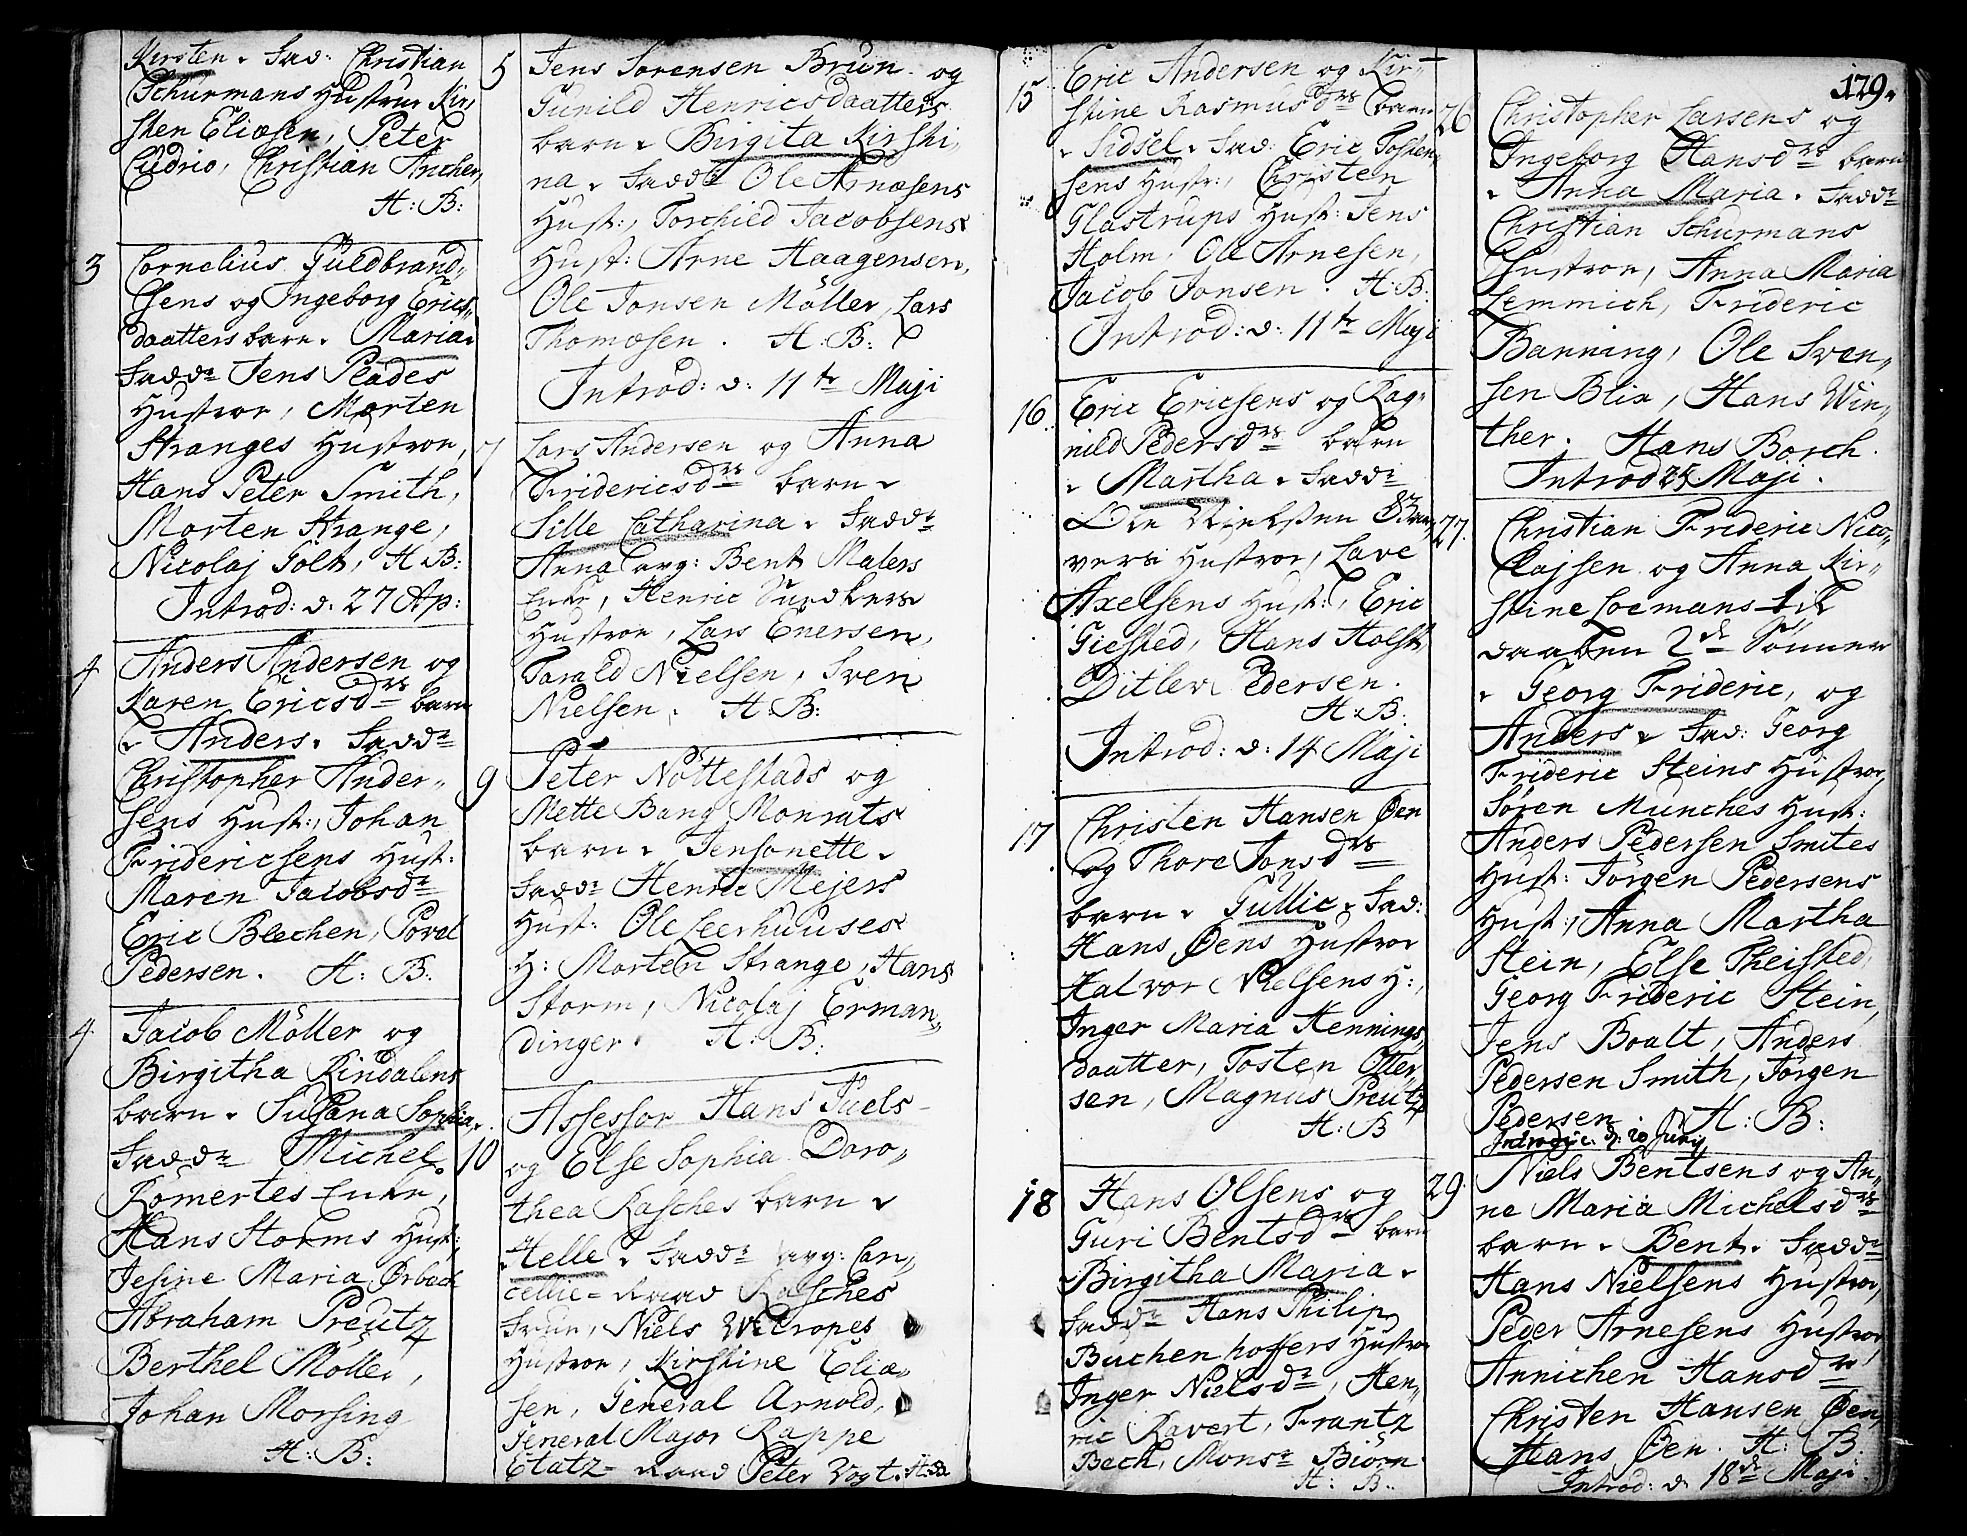 Kirsten. Fad: Christian
Schurmans Hustrue Kir-
sten Eliæsen, Peter
Cudrio, Christian Ancher,
H: B:
3 Cornelius Guldbrand-
sens og Ingeborg Erics-
daatters barn. Maria.
Fadd: Jens Plades
Hustroe, Morten
Stranges Hustroe,
Hans Peter Smith,
Morten Strange,
Nicolaj Solt, H B:
Introd: d: 27 Ap:
4 Anders Andersen og
Karen Ericsdrs barn
Anders. Fadd:
Christopher Ander-
sens Hust:, Johan
Fridericsens Hust:
Maren Jacobsdr
Eric Blechen, Povel
Pedersen. H: B:
4 Jacob Möller og
Birgitha Rindalens
barn. Susana Sophia,
Fadd: Michel
Römertes Enke,
Hans Storms Hust:,
Jesine Maria Ørbech
Abraham Preutz
Berthel Möller,
Johan Morsing
H: B:
5 Jens Sörensen Brun og
Gunild Henricsdaatters
barn. Birgita Kirsti-
na. Fadd: Ole Arnæsens
Hust:, Torchild Jacobsens
Hust: Arne Haagensen,
Ole Jonsen Möller, Lars
Thomæsen. H: B:
Introd: d: 11te Maji
7 Lars Andersen og Anna
Fridericsdrs barn
Sille Catharina. Fadd:
Anna Bent Malers
Enke, Henric Sundkers
Hustroe, Lars Enersen,
Tarald Nielsen, Sven
Nielsen. H: B:
9 Peter Nöttestads og
Mette Bang Monrats
barn. Jensonette.
Fadd: Henric Mejers
Hust: Ole Leerhuuses
H: Morten Strange, Hans
Storm, Nicolaj Erman-
dinger. H: B:
10 Assessor Hans Juels
og Else Sophia Doro-
thea Rasches barn
Helle. Fadd: Can-
cellie-Raad Rasches
Frue, Niels Weropes
Hustroe, Kirstine Eliæ-
sen, General Arnold,
General Major Rappe
Etatz-Raad Peter Vogt. H: B:
15 Eric Andersen og Kir-
stine Rasmusdrs barn
Sidsel. Fad: Eric Tosten-
sens Hustr:, Christen
Glastrups Hust: Jens
Holm, Ole Arnesen,
Jacob Jonsen. H: B:
Introd: d: 11te Maji
16 Eric Ericsens og Rag-
nild Pedersdrs barn
Martha. Fadd:
Ole Nielsen
vers Hustroe, Lave
Axelsens Hust:, Eric
Giested, Hans Holst,
Ditlev Pedersen.
H: B:
Introd: d: 14 Maji
17 Christen Hansen Øen
og Thore Jonsdrs
barn. Gullic. Fad:
Hans Øens Hustroe
Halvor Nielsens H:,
Inger Maria Hennings-
daatter, Tosten Otter-
sen, Magnus Preutz
H: B
18 Hans Olsens og
Guri Bentsdrs barn
Birgitha Maria.
Fadd: Hans Philip
Buchenhoffers Hustroe
Inger Nielsdr, Hen-
ric Ravert, Frantz
Bech, Monsr Biörn
H: B:
129.
26 Christopher Larsens og
Ingeborg Hansdrs barn
Anna Maria. Fadd:
Christian Schurmans
Hustroe, Anna Maria
Lemmich, Frideric
Banning, Ole Sven-
sen Blix, Hans Win-
ther. Hans Borch.
Introd 25 Maji.
27. Christian Frideric Nico-
lajsen og Anna Kir-
stine Loemans til
daaben 2de Sönner
Georg Frideric, og
Anders. Fad: Georg
Frideric Steins Hustroe,
Sören Munches Hust:
Anders Pedersen Smites
Hust: Jörgen Pedersens
Hust:, Anna Martha
Stein, Else Theisted,
Georg Frideric Stein,
Jens Boalt, Anders
Pedersen Smith, Jörgen
Pedersen. H: B:
Introduc. d: 20 Junij
29. Niels Bentsens og An-
ne Maria Michelsdrs
barn. Bent. Fadd:
Hans Nielsens Hustroe,
Peder Arnesens Hustroe,
Annichen Hansdr
Christen Hansen Øen,
Hans Øen. H: B.
Introd: d: 18de Maji.